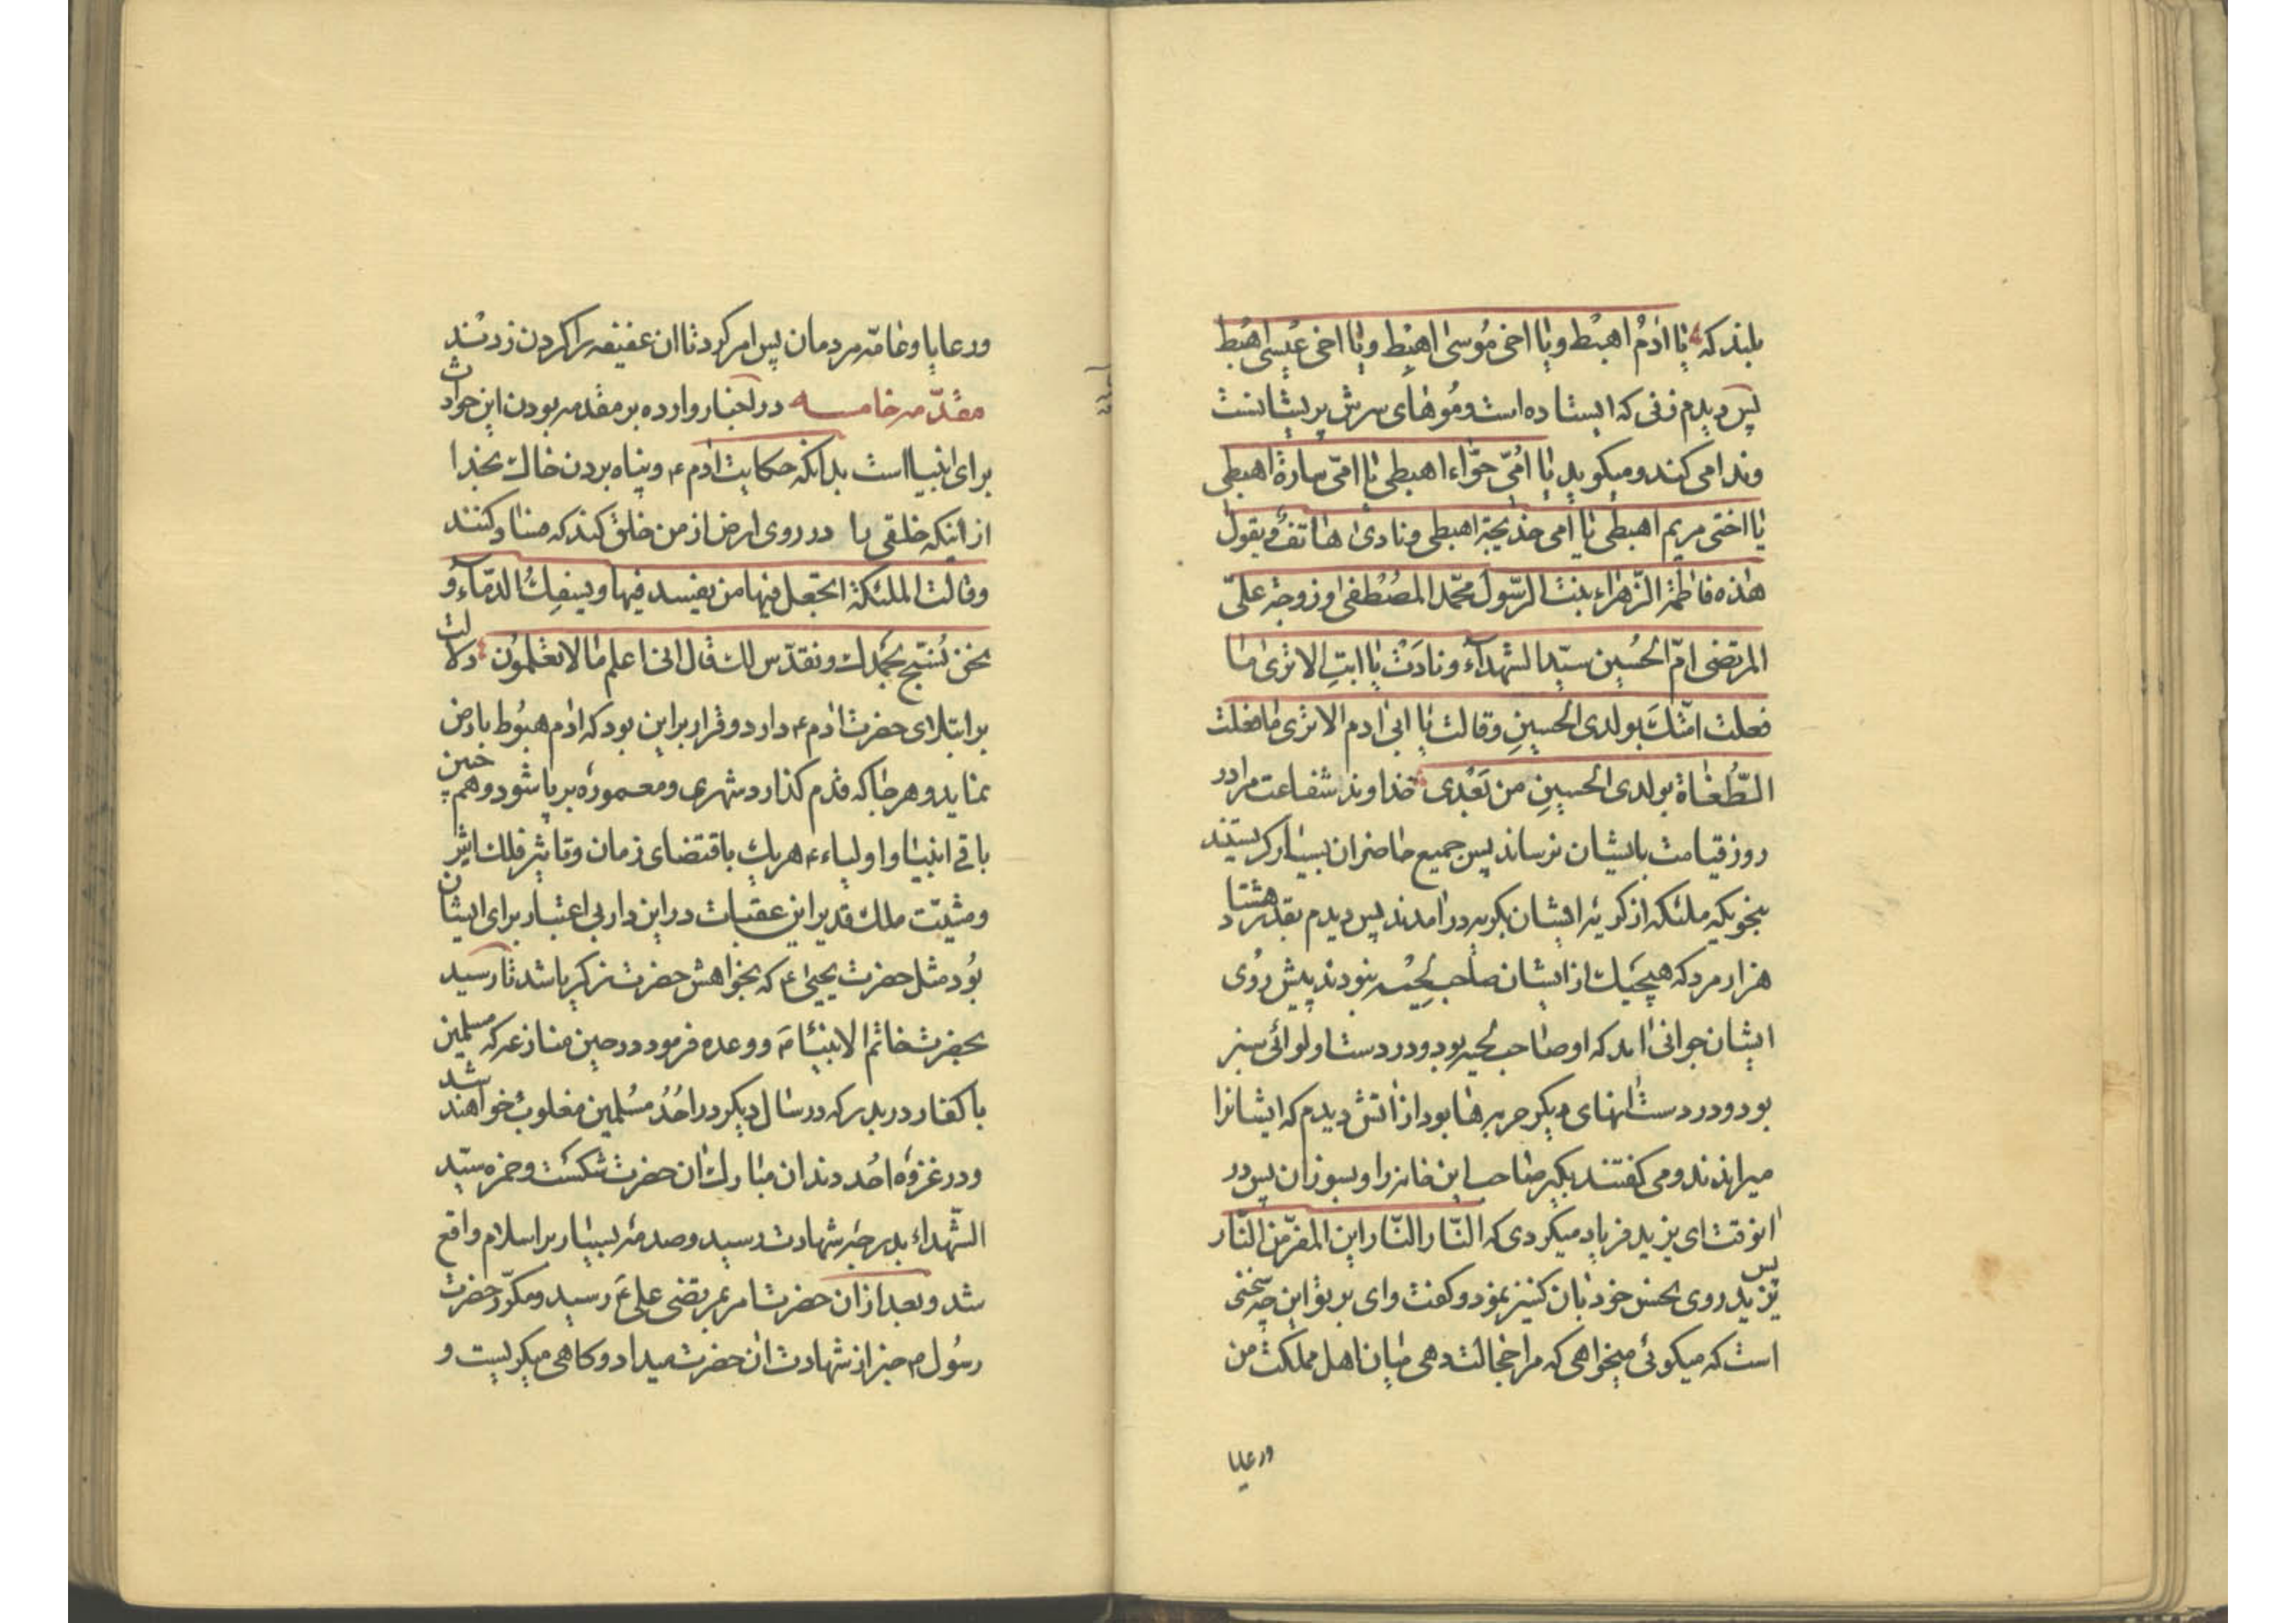 بلند که یا ادم اهبط و یا اخی موسی اهبط و یا اخی عیسی اهبط
پس دیدم زنی که ایستاده است و موهای سرش پریشانست
و ندا می کند و میکوید یا امّی حوّاء اهبطی یا امّی سارة اهبطی
یا اختی مریم اهبطی یا امی خدیجة اهبطی و نادی هاتف و یقول
هذه فاطمة الزّهراء بنت الرّسول محمّد المصطفی و زوجة علیّ
المرتضی امّ الحسین سیّد الشهدآء و نادت یا ابت الا تری ما
فعلت امّتك بولدی الحسین و قالت یا ابی ادم الا تری ما فعلت
الطّغاة بولدی الحسین من بعدی خداوند شفاعت مرا در
روز قیامت بایشان نرساند پس جمیع حاضران بسیار کریستند
بنحویکه ملئکه از کریه ایشان بکریه درامدند پس دیدم بقدر هشتاد
هزار مرد که هیچیك از ایشان صاحب لحیه نبودند پیش روی
ایشان جوانی امد که او صاحب لحیه بود و در دست او لوائی سبز
بود و در دست انهای دیکر حربه‌ها بود از اتش دیدم که ایشانرا
میراندند و می کفتند بکیر صاحب این خانه را و بسوزان پس در
انوقت ای یزید فریاد میکردی که النّار النّار این المفرّ من النّار
پس یزید روی نحس خود بان کنیز نمود و کفت وای بر تو این چه سخنی
است که میکوئی میخواهی که مرا خجالت دهی میان اهل مملکت من
ورعایا
ورعایا و عامّه مردمان پس امر کرد تا ان عفیفه را کردن زدند
مقدّمه خامسه در اخبار وارده بر مقدمه بودن این حوادث
برای انبیا است بدانکه حکایت ادم ع و پناه بردن خاك بخدا
از اینکه خلقی را در روی ارض از من خلق کند که فساد کنند
و قالت الملئکة اتجعل فیها من یفسد فیها و یسفك الدّمآء و
نحن نسبّح بحمدك و نقدّس لك قال انی اعلم ما لا تعلمون دلالت
بر ابتلای حضرت ادم ع دارد و قرار بر این بود که ادم هبوط بارض
نماید و هر جا که قدم کذارد شهری و معموره برپا شود و همچنین
باقی انبیا و اولیاء ع هر یك باقتضای زمان و تاثیر فلك اثیر
و مشیّت ملك قدیر این عقبات در این دار بی اعتبار برای ایشان
بود مثل حضرت یحیی ع که بخواهش حضرت زکریا شد تا رسید
بحضرت خاتم الانبیا ص و وعده فرمود در حین منازعه که مسلمین
با کفار در بدر که در سال دیکر در احد مسلمین مغلوب خواهند شد
و در غزوه احد دندان مبارك ان حضرت شکست و حمزه سیّد
الشّهداء بدرجه شهادت رسید و صدمه بسیار بر اسلام واقع
شد و بعد از ان حضرت امر بمرتضی علی ع رسید و مکرّر حضرت
رسول ص خبر از شهادت ان حضرت میداد و کاهی میکریست و